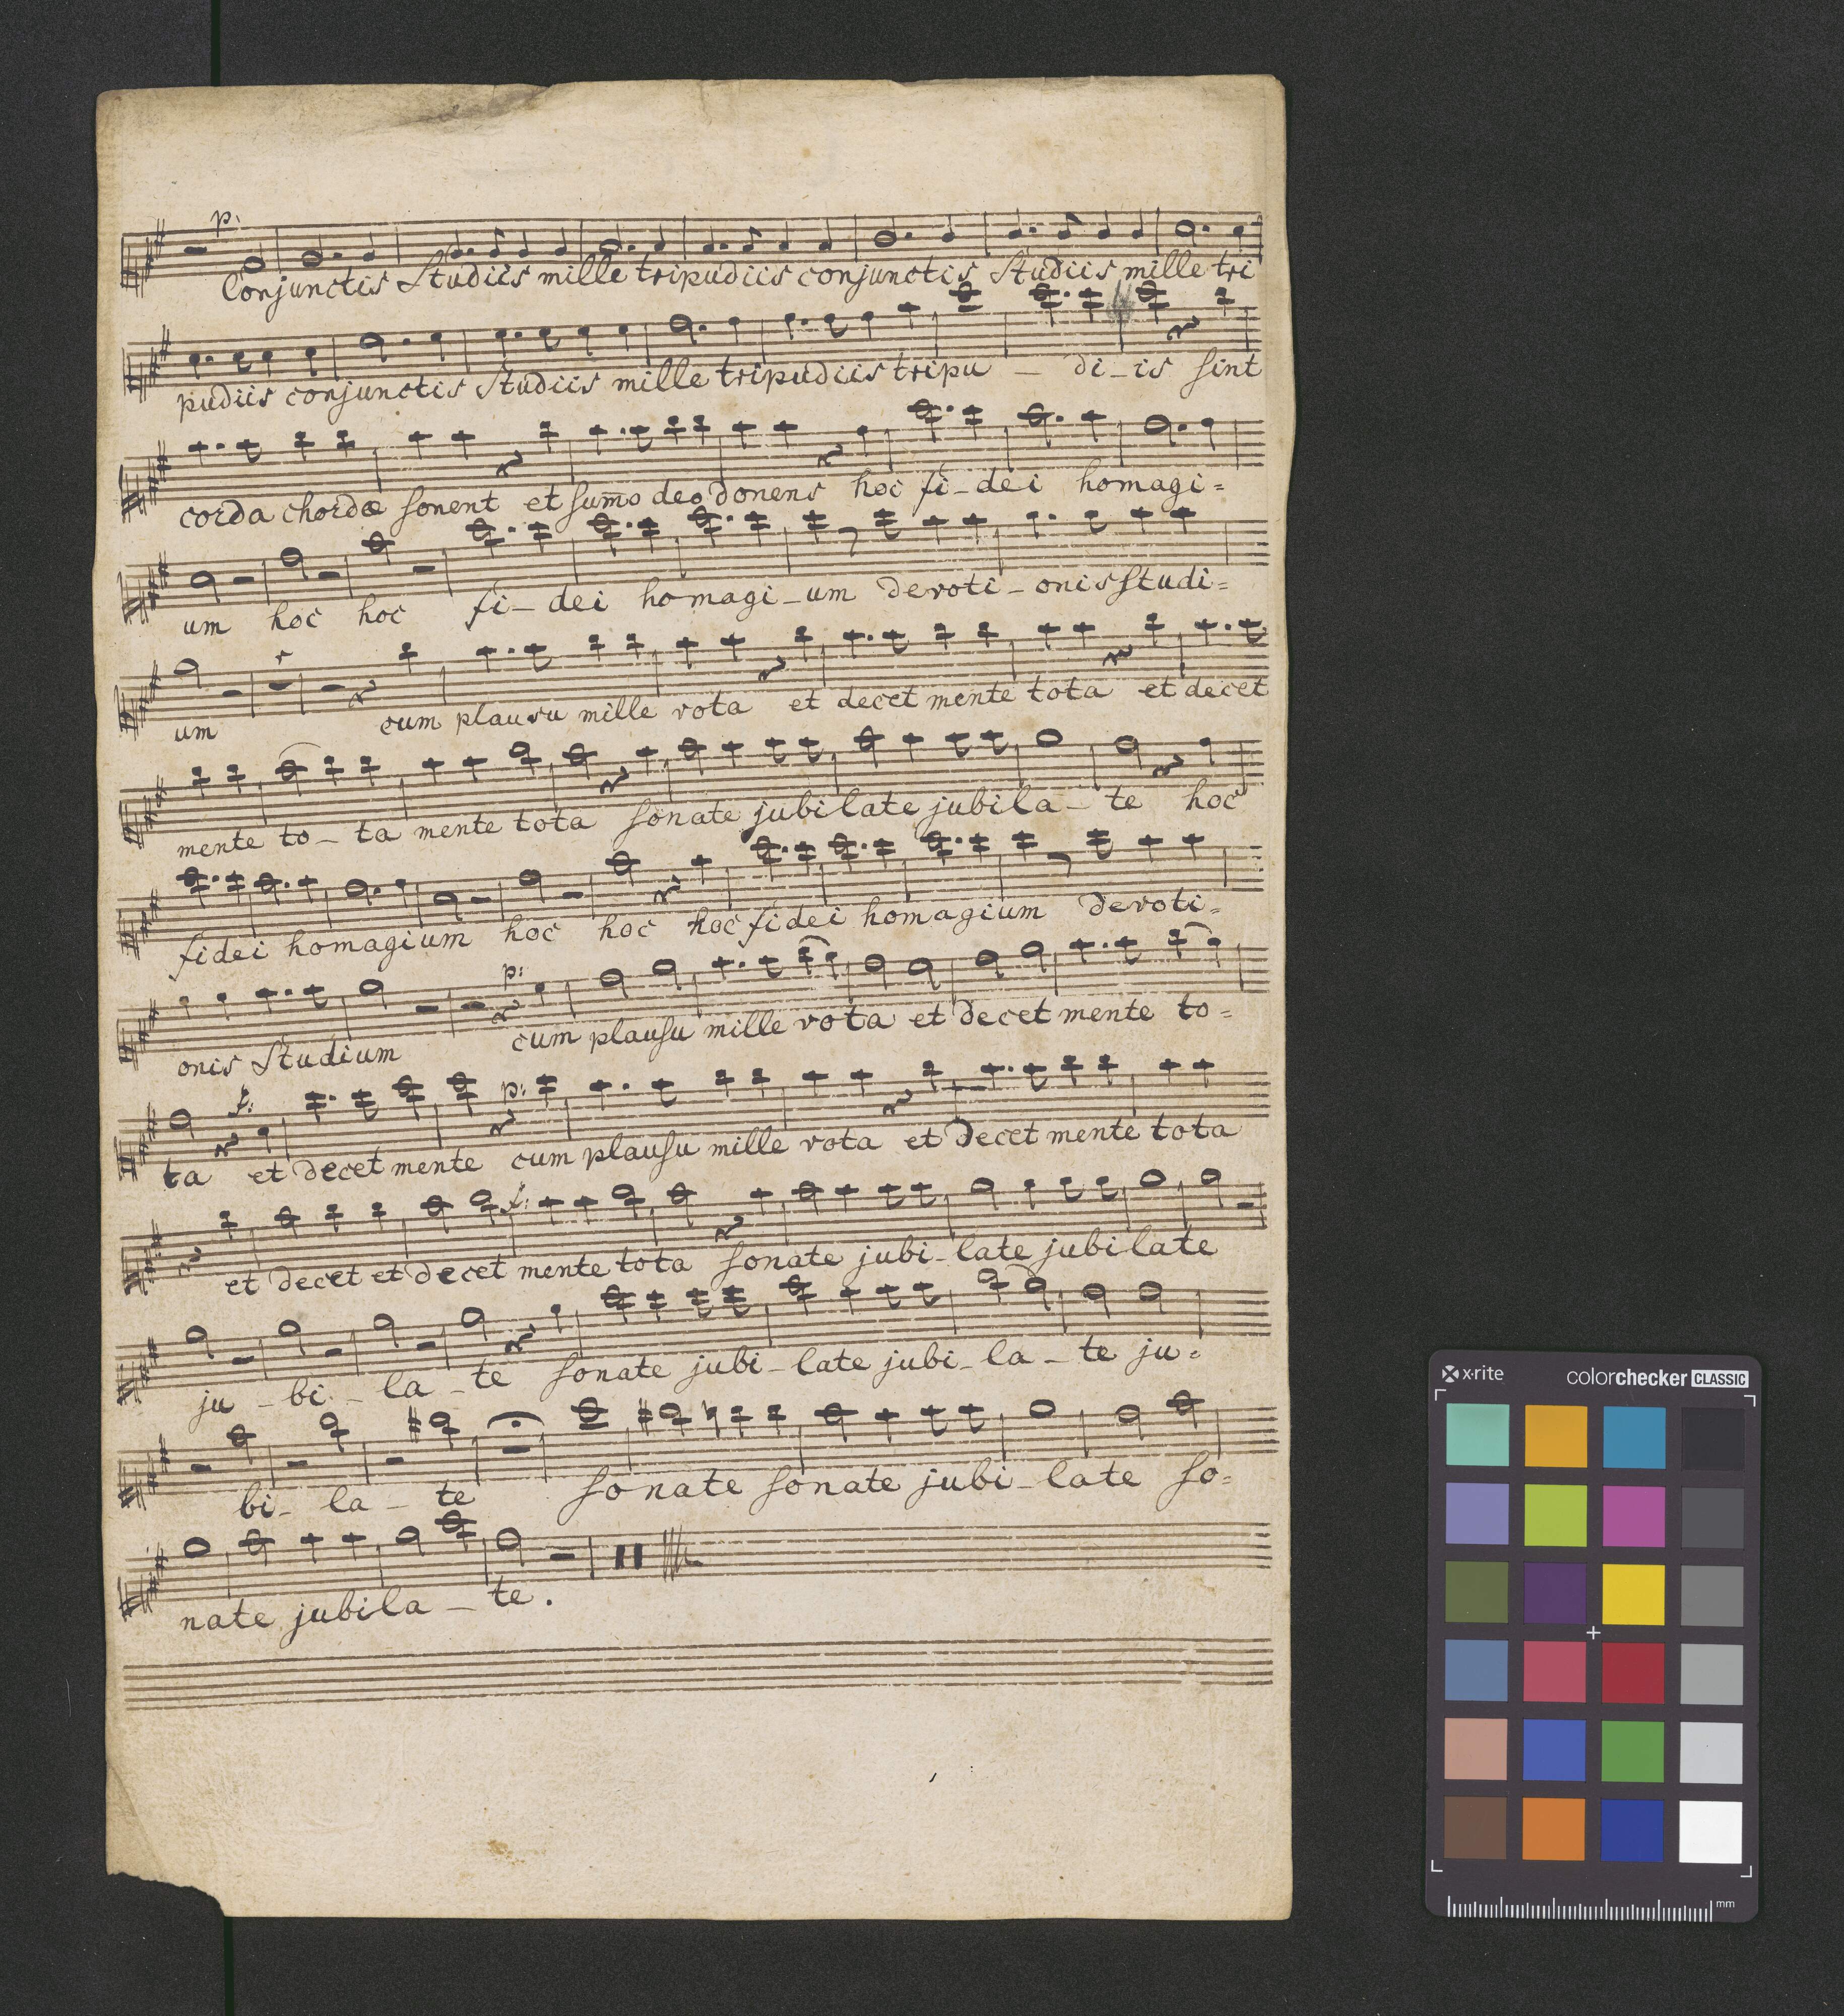 p:
Conjunctis Studiis mille tripudiis conjunctis Studiis mille tri
pudiis conjunctis Studiis mille tripudiis tripu - di - is sint
corda chordæ sonent et sum̄o deo donens hoc fi - dei homagi =
um hoc hoc fi - dei homagi - um devoti - onis Studi =
um cum plausu mille vota et decet mente tota et decet
mente to - ta mente tota sonate jubilate jubila - te hoc
fidei homagium hoc hoc hoc fidei homagium devoti =
p:
onis Studium cum plausu mille vota et decet mente to =
f: p:
ta et decet mente cum plausu mille vota et decet mente tota
f:
et decet et decet mente tota sonate jubi - late jubilate
ju - bi - la - te sonate jubi - late jubi - la - te ju =
bi - la - te sonate sonate jubi - late so =
nate jubila - te.
x·rite colorchecker CLASSIC
mm